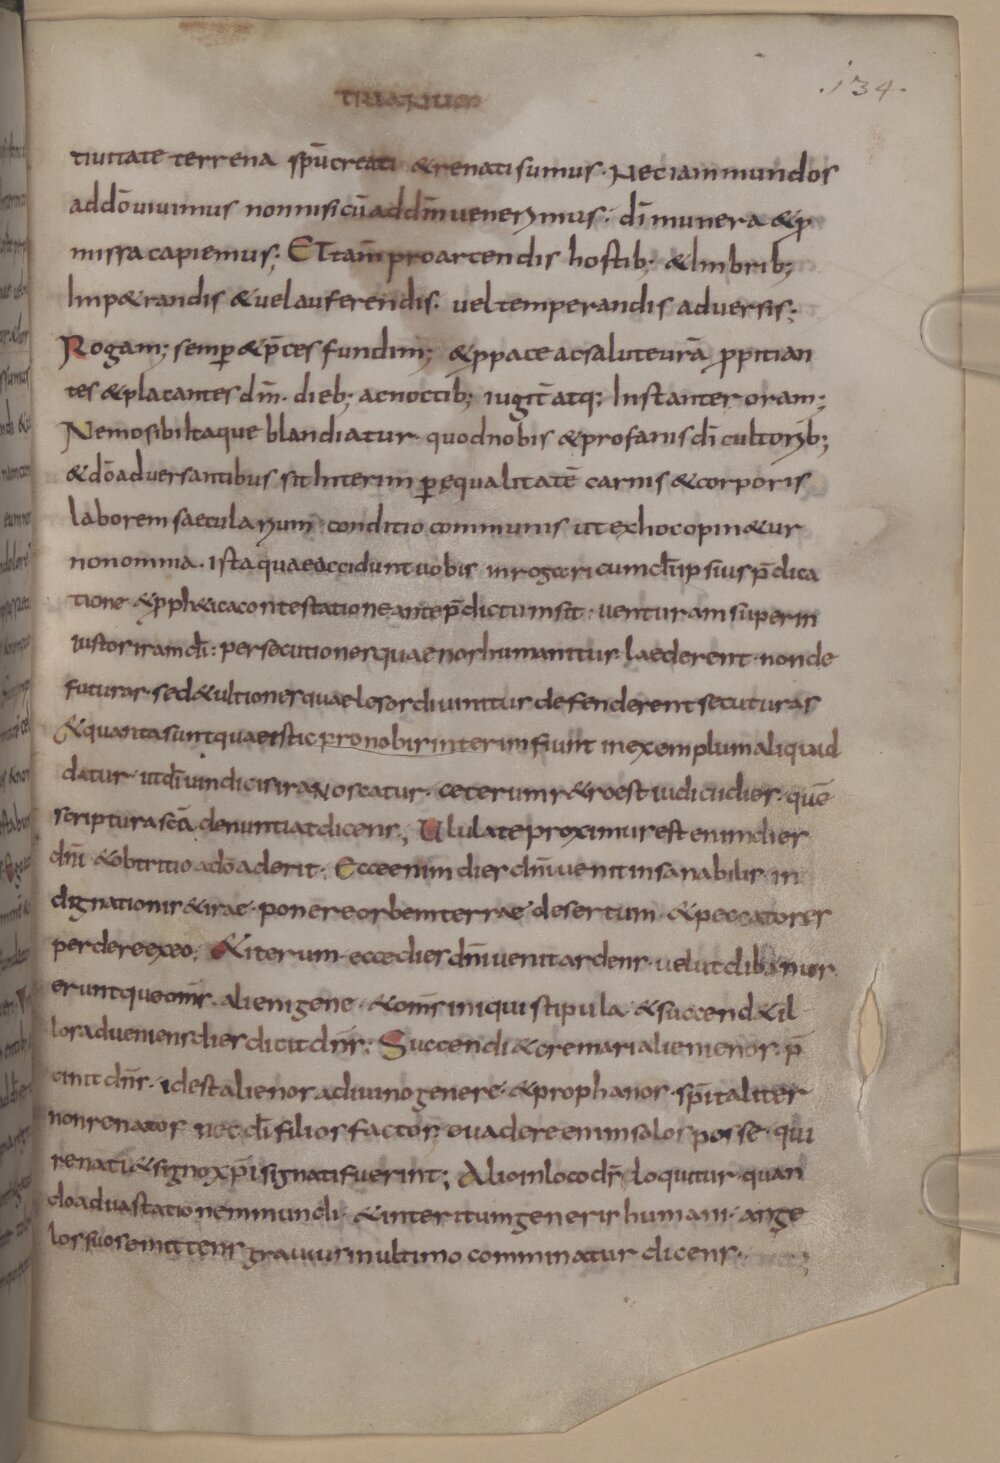 TRIARIUM
.134.
tiuitate terrena sp̄u creati & renati sumus. Nec iam mundo s
ad dō uiuimus non nisi cū ad dm̄ uenerimus. dī munera & p
missa capiemus; Et tam̄ pro arcendis hostib; & Imbrib;
Imp&randis & uel auferendis. uel temperandis aduersis;
Rogam; semp & p̄ces fundim; & p pace ac salute urā ppitian
tes & placantes dm̄. dieb; ac noctib; iugit̄ atq; Instanter oram;
Nemo sibi Itaque blandiatur quod nobis & profanis dī cultorib;
& dō aduersantibus sit Interim p ęqualitatē carnis & corporis
laborem saecularium conditio communis ut ex hoc opin&ur
non omnia. ista quae accidunt uobis inrogari cum dī ipsius p̄dica
tione & pph&ica contestatione ante p̄dictum sit. uenturam super in
iustos iram dī: persecutiones quae nos humanitus laederent non de
futuras. sed & ultiones quae lesos diuinitus defenderent secuturas
& quanta sunt quae istic pro nobis interim fiunt in exemplum aliquid
datur. ut dī uindicis ira Noscatur. ceterum r&ro est iudicii dies. quē
scriptura scā denuntiat dicens; Ululate proximus est enim dies
dn̄i & obtritio a dō aderit. Ecce enim dies dn̄i uenit insanabilis in
dignationis & irae ponere orbem terrae desertum & peccatores
perdere ex eo. & iterum ecce dies dn̄i uenit ardens uelut clibanus
eruntque om̄s alienigene & om̄s iniqui stipula & succend& il
los adueniens dies dicit dn̄s. Succendi & cremari alienienos p̄
cinit dn̄s. idest alienos a diuino genere & prophanos sp̄italiter
non renatos nec dī filios factos. euadere enim solos posse qui
renati & signo xp̄i signati fuerint; Alio in loco ds̄ loquitur quan
do ad uastationem mundi & interitum generis humani ange
los suos emittens grauius in ultimo comminatur dicens.